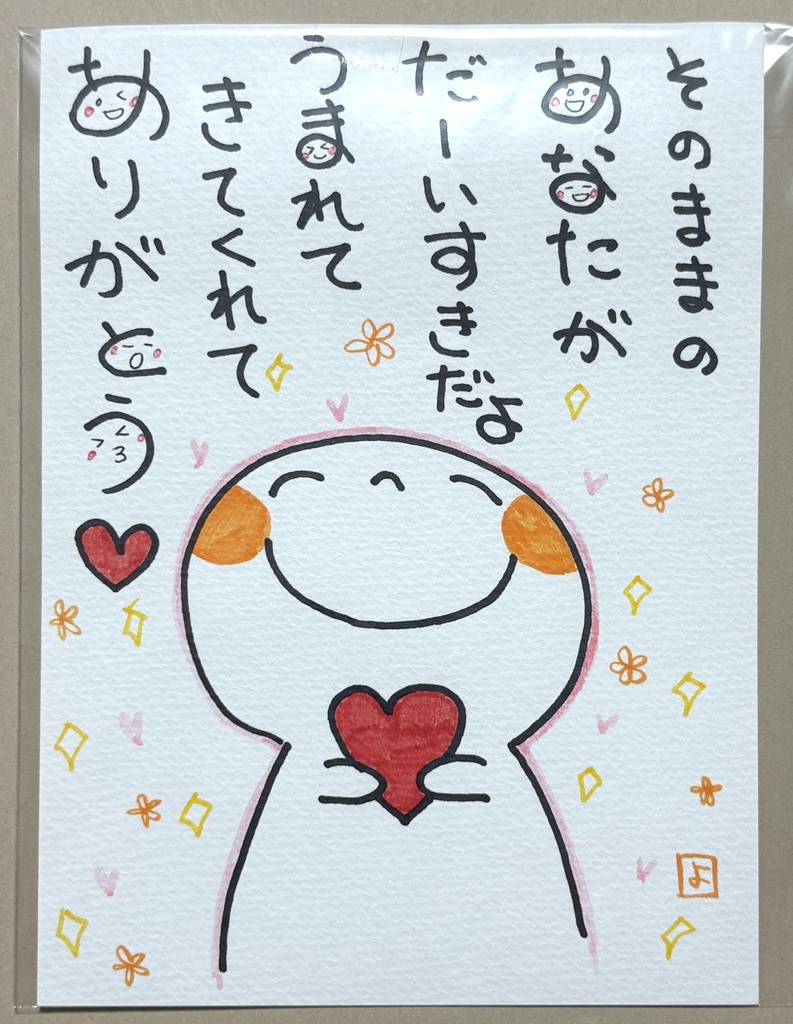 そのままの
あなたが
だーいすきだよ
うまれて
きてくれて
ありがとう
よ